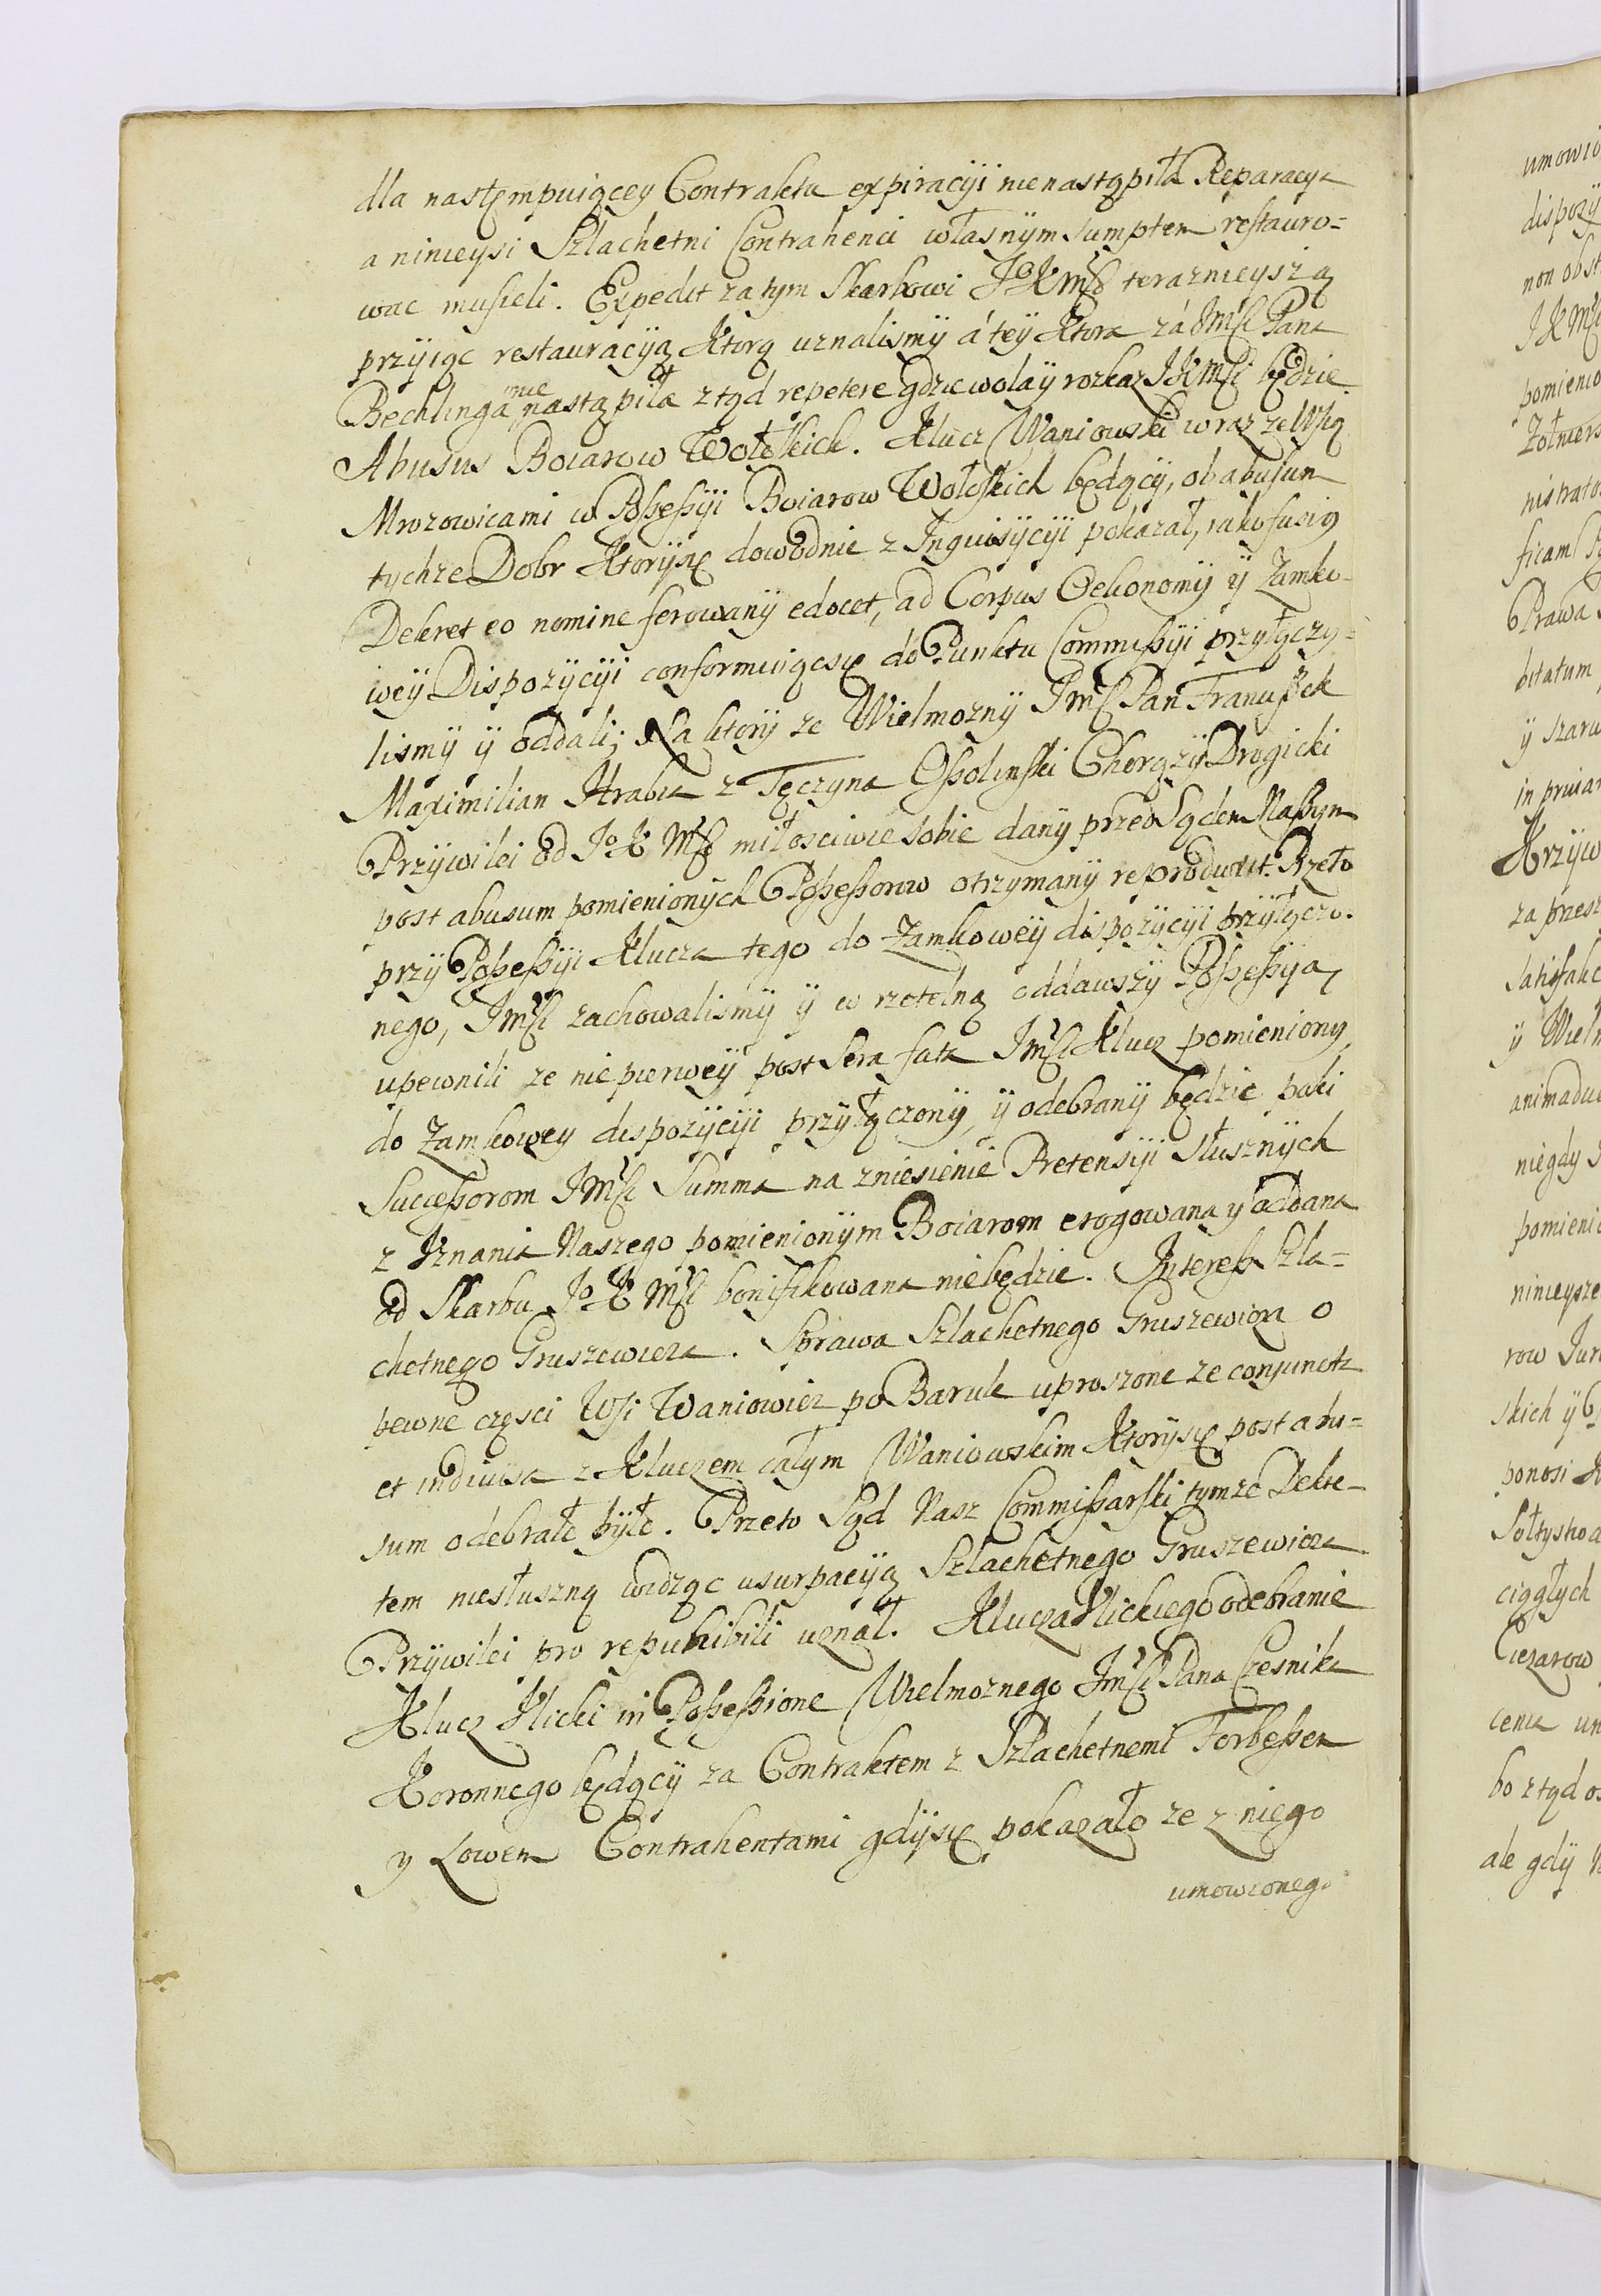 dla nastęmpuiącey Contraktu expiracyi nie nastąpiła Reparacya
a ninieysi Szlachetni Contrahenci własnym sumptem restauro=
wac musieli. Expedit za tym Skarbowi JoKMśći teraznieyszą
przyiąc restauracyą ktorą uznalismy á tey ktora zá JMśći Pana
Bechlinga nie nastąpiła ztąd repetere gdzie wola y rozkaz JKMśći będzie
Abusus Boiarow Wołoskich. Klucz Waniowski wraz ze Wsią
Mrozowicami w Possessyi Boiarow Wołoskich będący, ob abusum
tychze Dobr ktory się dowodnie z Inquisycyi pokazał, iako fusius
Dekret eo nomine ferowany edocet, ad Corpus Oekonomy y Zamko-
wey Dispozycyi conformuiąc się do Punktu Commissyi przyłączy=
lismy y oddali; Na ktory ze Wielmozny JMść Pan Franciszek
Maximilian Hrabia z Tęczyna Ossolinski Chorązy Drogicki
Przywilei od Jo K Mśći miłosciwie sobie dany przed Sądem Naszym
post abusum pomienionych Possessorow otrzymany reproduxit. Przeto
przy Possessyi Klucza tego do Zamkowey dispozycyi przyłączo-
nego, JMśći zachowalismy y w rzetelną oddawszy Possessyą
upewnili ze nie pierwey post sera fata JMśći Klucz pomieniony
do Zamkowey dispozycyi przyłączony, y odebrany będzie poki
Successorom JMśći Summa na zniesienie Pretensyi słusznych
z Uznania Naszego pomienionym Boiarom erogowana y oddana
od Skarbu Jo K Mśći bonifikowana niebędzie. Interess Szla=
chetnego Gruszewicza. Sprawa Szlachetnego Gruszewicza o
pewne częsci Wsi Waniowicz po Barule uproszone ze conjuncta
et indivisa z Kluczem całym Waniowskim ktory się post abu=
sum odebrało było. Przeto Sąd Nasz Commissarski tymze Dekre-
tem niesłuszną widząc usurpacyą Szlachetnego Gruszewicza
Przywilei pro repuhibili uznał. Klucza Ilickiego odebranie
Klucz Ilicki in Possessione Wielmoznego JMśći Pana Czesnika
Koronnego będący za Contraktem z Szlachetnemi Forbessem
y Lowem Contrahentami gdy się pokazało ze z niego
umowionego